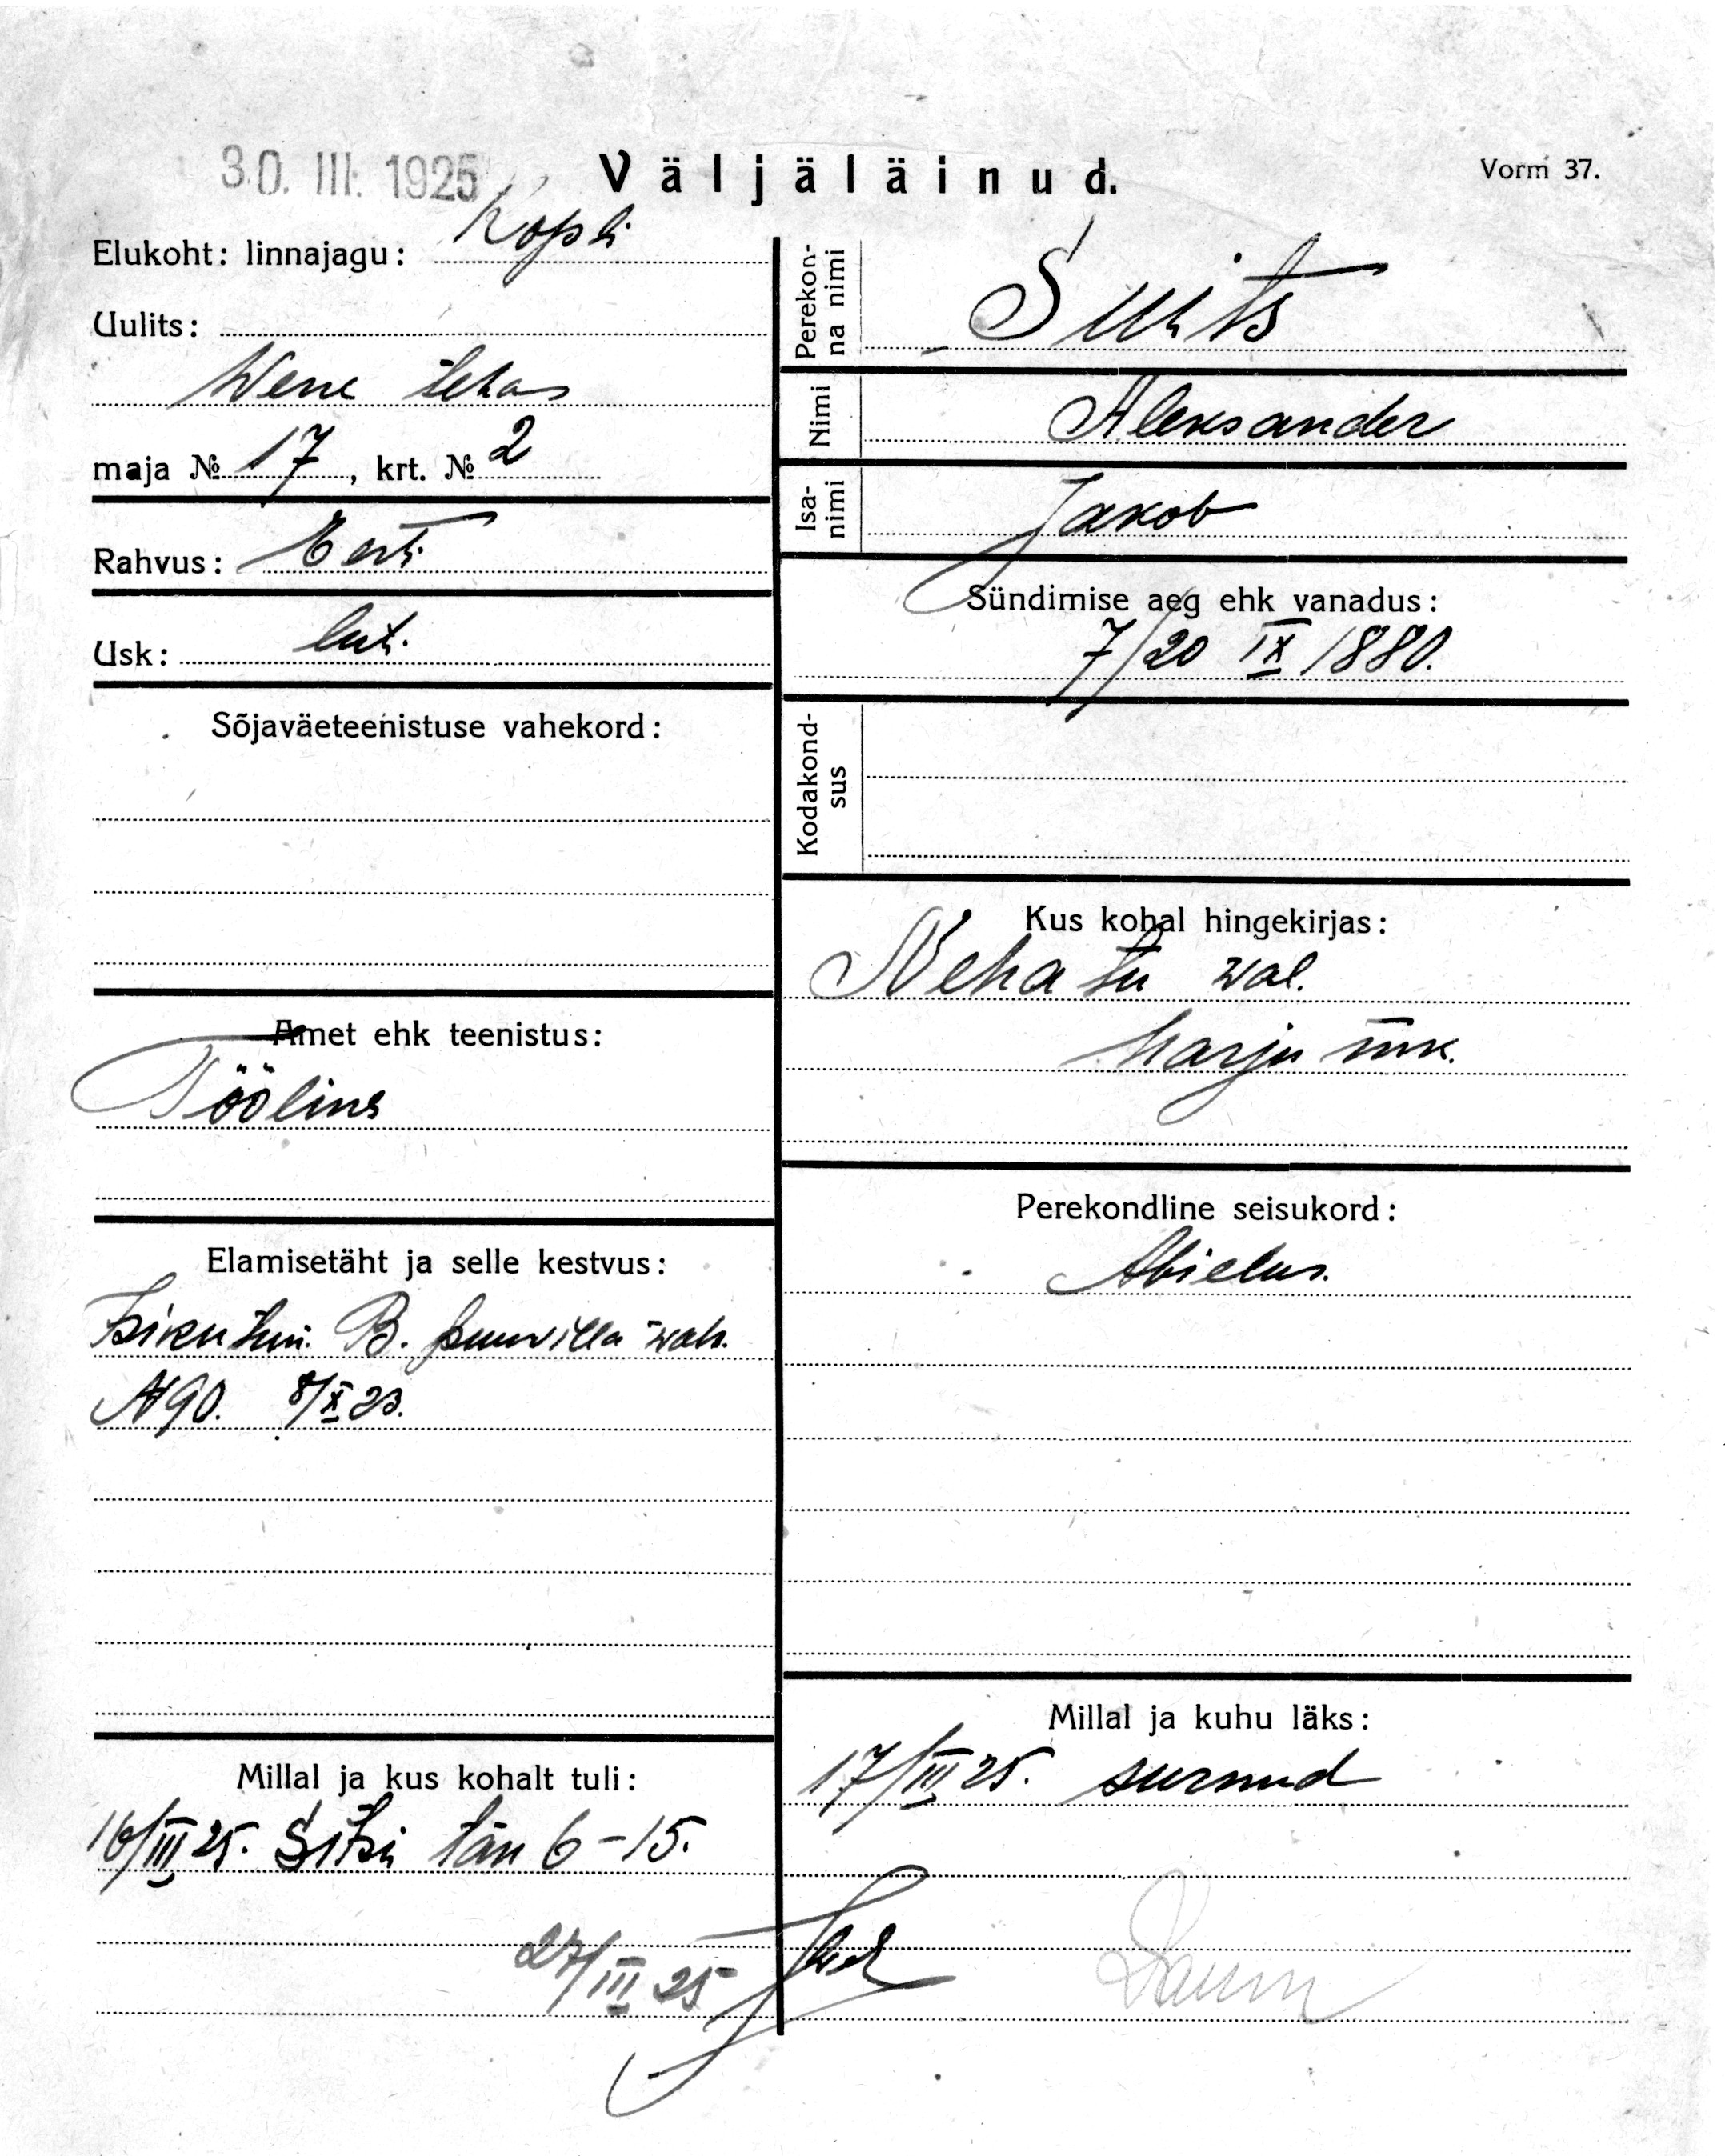 30. III. 1925
Väljäläinud.
Vorm 37.
Elukoht: linnajagu: Kopli
Uulits:
Wene tehas
maja № 17, krt. № 2
Rahvus: Eesti
Usk: lut.
Sõjaväeteenistuse vahekord:
Amet ehk teenistus:
Tööline
Elamisetäht ja selle kestvus:
Isikutun. B. puuvilla wab.
N90. 8/X 23.
Millal ja kus kohalt tuli:
16/III 25. Sitsi tän 6-15.
27/III 25
Perekonna nimi
Suits
Nimi
Aleksander
Isanimi
Jakob
Sündimise aeg ehk vanadus:
7/20 IX 1880.
Kodakondsus
Kus kohal hingekirjas:
Nehatu wal.
Harju mk.
Perekondline seisukord:
Abielus.
Millal ja kuhu läks:
17/III 25. surnud